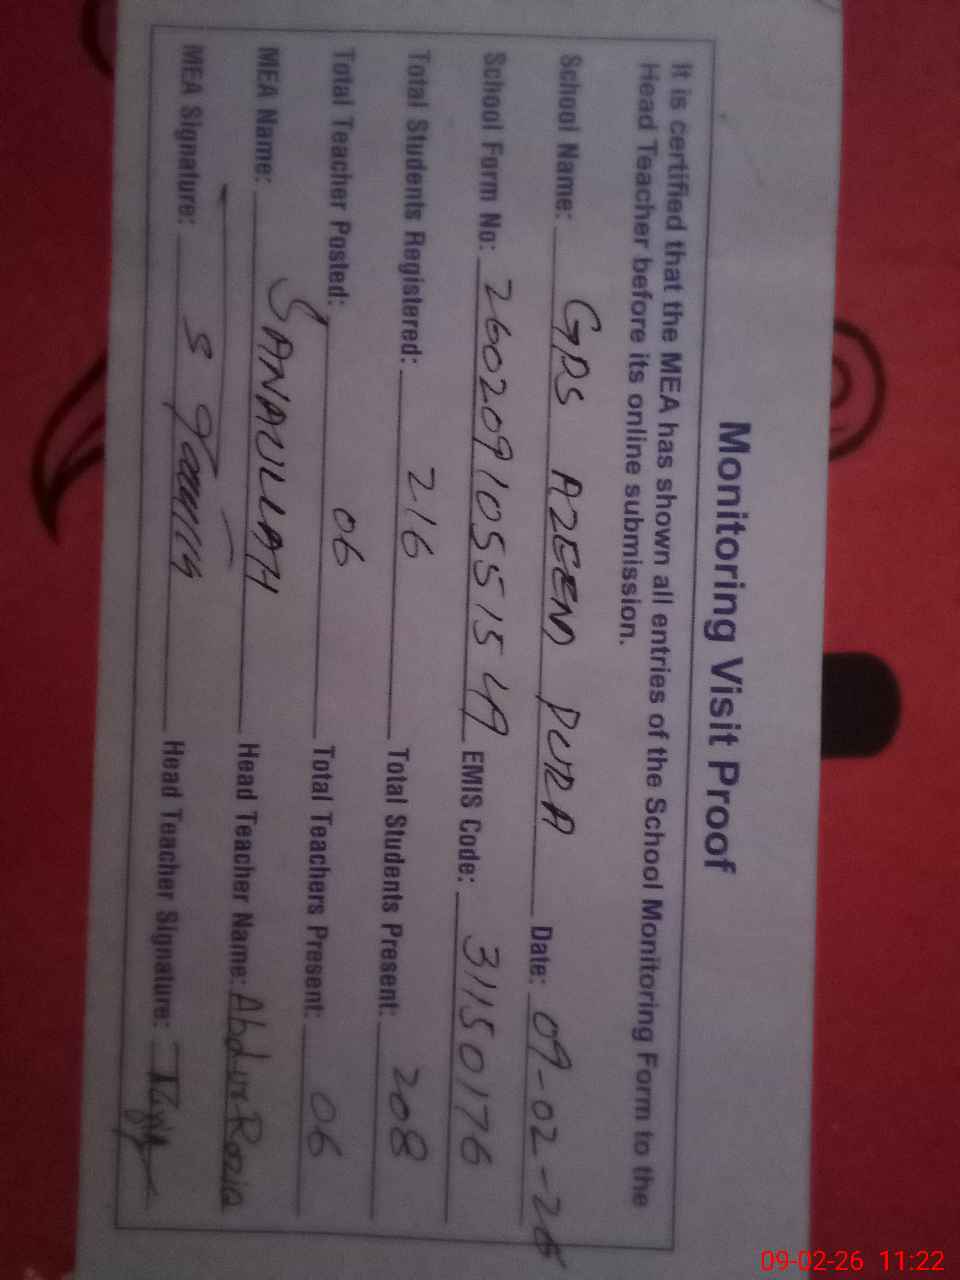 Monitoring Visit Proof
It is certified that the MEA has shown all entries of the School Monitoring Form to the
Head Teacher before its online submission.
School Name: GPS AZEEM PURA Date: 09-02-26
School Form No: 260209105515 49 EMIS Code: 31150176
Total Students Registered: 216 Total Students Present: 208
Total Teacher Posted: 06 Total Teachers Present: 06
MEA Name: SANAULLAH Head Teacher Name: Abdur Raziq
MEA Signature: Head Teacher Signature:
09-02-26 11:22